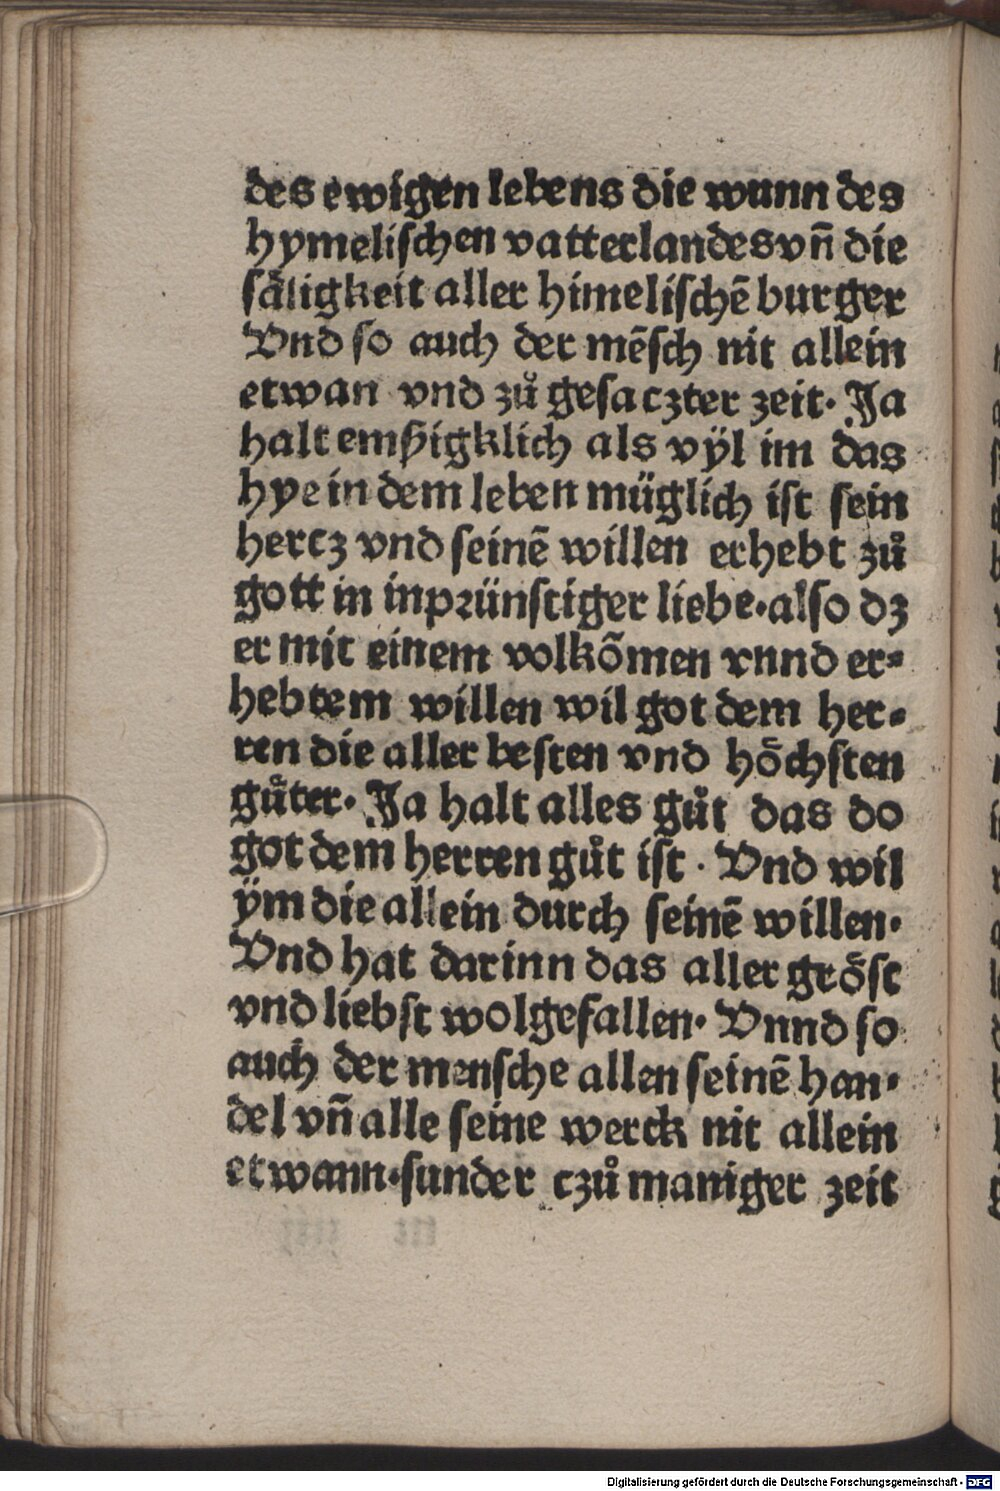 des ewigen lebens die wunn des
hymelischen vatterlandes vñ die
säligkeit aller himelischē burger
Vnd so auch der mēsch nit allein
etwan vnd zů gesaczter zeit. Ja
halt emßigklich als vÿl im das
hye in dem leben müglich ist sein
hertz vnd seinē willen erhebt zů
gott in inprünstiger liebe. also dz
er mit einem volkōmen vnnd er⸗
hebtem willen wil got dem her⸗
ren die aller besten vnd höchsten
gůter. Ja halt alles gůt das do
got dem herren gůt ist. Vnd wil
ÿm die allein durch seinē willen.
Vnd hat darinn das aller gröst
vnd liebst wolgefallen. Vnnd so
auch der mensche allen seinē han⸗
del vñ alle seine werck nit allein
etwann. sunder czů maniger zeit
Digitalisierung gefördert durch die Deutsche Forschungsgemeinschaft - DFG